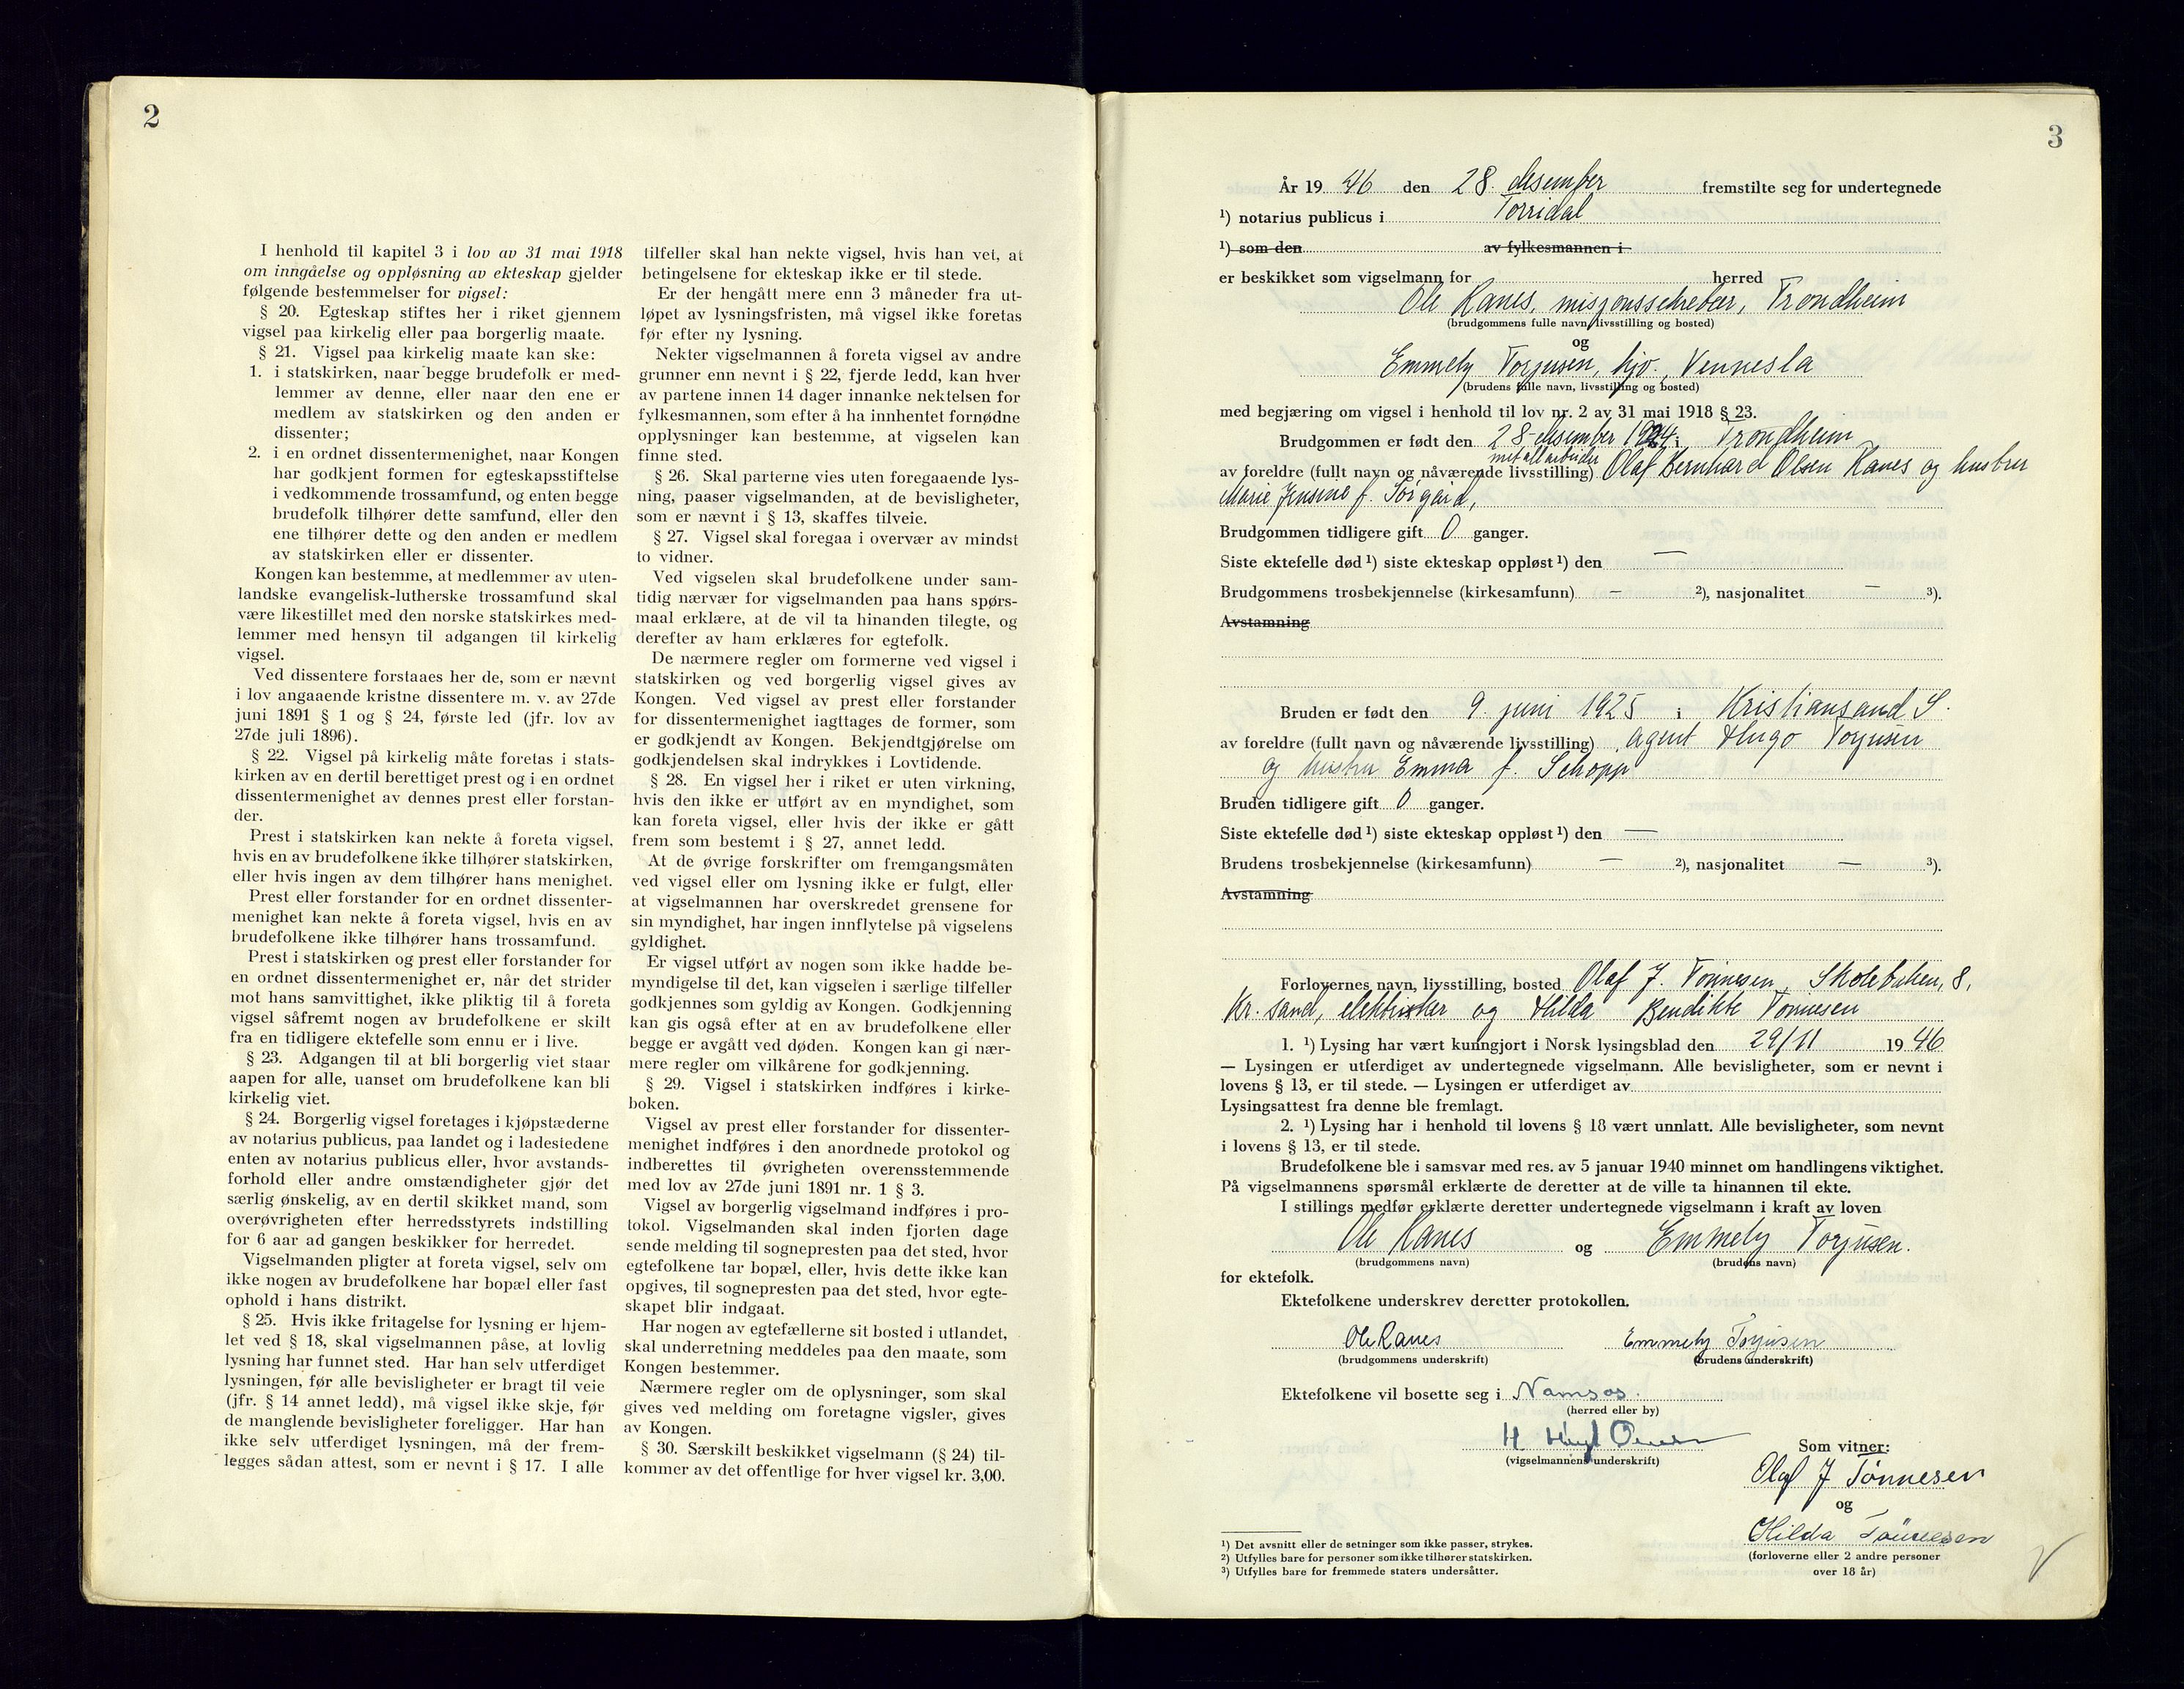 2
I henhold til kapitel 3 i lov av 31 mai 1918
om inngåelse og oppløsning av ekteskap gjelder
følgende bestemmelser for vigsel:
§ 20. Egteskap stiftes her i riket gjennem
vigsel paa kirkelig eller paa borgerlig maate.
§ 21. Vigsel paa kirkelig maate kan ske:
1. i statskirken, naar begge brudefolk er med-
lemmer av denne, eller naar den ene er
medlem av statskirken og den anden er
dissenter;
2. i en ordnet dissentermenighet, naar Kongen
har godkjent formen for egteskapsstiftelse
i vedkommende trossamfund, og enten begge
brudefolk tilhører dette samfund, eller den
ene tilhører dette og den anden er medlem
av statskirken eller er dissenter.
Kongen kan bestemme, at medlemmer av uten-
landske evangelisk-lutherske trossamfund skal
være likestillet med den norske statskirkes med-
lemmer med hensyn til adgangen til kirkelig
vigsel.
Ved dissentere forstaaes her de, som er nævnt
i lov angaaende kristne dissentere m. v. av 27de
juni 1891 § 1 og § 24, første led (jfr. lov av
27de juli 1896).
§ 22. Vigsel på kirkelig måte foretas i stats-
kirken av en dertil berettiget prest og i en ordnet
dissentermenighet av dennes prest eller forstan-
der.
Prest i statskirken kan nekte å foreta vigsel,
hvis en av brudefolkene ikke tilhører statskirken,
eller hvis ingen av dem tilhører hans menighet.
Prest eller forstander for en ordnet dissenter-
menighet kan nekte å foreta vigsel, hvis en av
brudefolkene ikke tilhører hans trossamfund.
Prest i statskirken og prest eller forstander for
en ordnet dissentermenighet er, når det strider
mot hans samvittighet, ikke pliktig til å foreta
vigsel såfremt nogen av brudefolkene er skilt
fra en tidligere ektefelle som ennu er i live.
§ 23. Adgangen til at bli borgerlig viet staar
aapen for alle, uanset om brudefolkene kan bli
kirkelig viet.
§ 24. Borgerlig vigsel foretages i kjøpstæderne
av notarius publicus, paa landet og i ladestedene
enten av notarius publicus eller, hvor avstands-
forhold eller andre omstændigheter gjør det
særlig ønskelig, av en dertil skikket mand, som
overøvrigheten efter herredsstyrets indstilling
for 6 aar ad gangen beskikker for herredet.
Vigselmanden pligter at foreta vigsel, selv om
ikke nogen av brudefolkene har bopæl eller fast
ophold i hans distrikt.
§ 25. Hvis ikke fritagelse for lysning er hjem-
let ved § 18, skal vigselmannen påse, at lovlig
lysning har funnet sted. Har han selv utferdiget
lysningen, før alle bevisligheter er bragt til veie
(jfr. § 14 annet ledd), må vigsel ikke skje, før
de manglende bevisligheter foreligger. Har han
ikke selv utferdiget lysningen, må der frem-
legges sådan attest, som er nevnt i § 17. I alle
tilfeller skal han nekte vigsel, hvis han vet, at
betingelsene for ekteskap ikke er til stede.
Er der hengått mere enn 3 måneder fra ut-
løpet av lysningsfristen, må vigsel ikke foretas
før efter ny lysning.
Nekter vigselmannen å foreta vigsel av andre
grunner enn nevnt i § 22, fjerde ledd, kan hver
av partene innen 14 dager innanke nektelsen for
fylkesmannen, som efter å ha innhentet fornødne
opplysninger kan bestemme, at vigselen kan
finne sted.
§ 26. Skal parterne vies uten foregaaende lys-
ning, paaser vigselmanden, at de bevisligheter,
som er nævnt i § 13, skaffes tilveie.
§ 27. Vigsel skal foregaa i overvær av mindst
to vidner.
Ved vigselen skal brudefolkene under sam-
tidig nærvær for vigselmanden paa hans spørs-
maal erklære, at de vil ta hinanden tilegte, og
derefter av ham erklæres for egtefolk.
De nærmere regler om formerne ved vigsel i
statskirken og ved borgerlig vigsel gives av
Kongen. Ved vigsel av prest eller forstander
for dissentermenighet iagttages de former, som
er godkjendt av Kongen. Bekjendtgjørelse om
godkjendelsen skal indrykkes i Lovtidende.
§ 28. En vigsel her i riket er uten virkning,
hvis den ikke er utført av en myndighet, som
kan foreta vigsel, eller hvis der ikke er gått
frem som bestemt i § 27, annet ledd.
At de øvrige forskrifter om fremgangsmåten
ved vigsel eller om lysning ikke er fulgt, eller
at vigselmannen har overskredet grensene for
sin myndighet, har ingen innflytelse på vigselens
gyldighet.
Er vigsel utført av nogen som ikke hadde be-
myndigelse til det, kan vigselen i særlige tilfeller
godkjennes som gyldig av Kongen. Godkjenning
kan gis også efter at en av brudefolkene eller
begge er avgått ved døden. Kongen kan gi nær-
mere regler om vilkårene for godkjenning.
§ 29. Vigsel i statskirken indføres i kirke-
boken.
Vigsel av prest eller forstander for dissenter-
menighet indføres i den anordnede protokol og
indberettes til øvrigheten overensstemmende
med lov av 27de juni 1891 nr. 1 § 3.
Vigsel av borgerlig vigselmand indføres i pro-
tokol. Vigselmanden skal inden fjorten dage
sende melding til sognepresten paa det sted, hvor
egtefolkene tar bopæl, eller, hvis dette ikke kan
opgives, til sognepresten paa det sted, hvor egte-
skapet blir indgaat.
Har nogen av egtefællerne sit bosted i utlandet,
skal underretning meddeles paa den maate, som
Kongen bestemmer.
Nærmere regler om de oplysninger, som skal
gives ved melding om foretagne vigsler, gives
av Kongen.
§ 30. Særskilt beskikket vigselmann (§ 24) til-
kommer av det offentlige for hver vigsel kr. 3,00.
3
År 19 46 den 28. desember fremstilte seg for undertegnede
¹) notarius publicus i Torridal
¹) som den av fylkesmannen i
er beskikket som vigselmann for herred
Ole Ranes, misjonssekretær, Trondheim
(brudgommens fulle navn, livsstilling og bosted)
og
Emmely Torjusen, hjv., Vennesla
(brudens fulle navn, livsstilling og bosted)
med begjæring om vigsel i henhold til lov nr. 2 av 31 mai 1918 § 23.
Brudgommen er født den 28-desember 1924 i Trondheim
metallarbeider
av foreldre (fullt navn og nåværende livsstilling) Olaf Bernhard Olsen Ranes og hustru
Marie Jensine f. Sørgård,
Brudgommen tidligere gift 0 ganger.
Siste ektefelle død ¹) siste ekteskap oppløst ¹) den —
Brudgommens trosbekjennelse (kirkesamfunn) — ²), nasjonalitet — ³).
Avstamning
Bruden er født den 9. juni 1925 i Kristiansand S.
av foreldre (fullt navn og nåværende livsstilling) agent Hugo Torjusen
og hustru Emma f. Schopp
Bruden tidligere gift 0 ganger.
Siste ektefelle død ¹) siste ekteskap oppløst ¹) den —
Brudens trosbekjennelse (kirkesamfunn) — ²), nasjonalitet — ³).
Avstamning
Forlovernes navn, livsstilling, bosted Olaf J. Tønnesen, Skolebakken, 8,
Kr. sand, elektriker og Hilda Bendikte Tønnesen
1. ¹) Lysing har vært kunngjort i Norsk lysingsblad den 29/11 19 46
— Lysingen er utferdiget av undertegnede vigselmann. Alle bevisligheter, som er nevnt i
lovens § 13, er til stede. — Lysingen er utferdiget av
Lysingsattest fra denne ble fremlagt.
2. ¹) Lysing har i henhold til lovens § 18 vært unnlatt. Alle bevisligheter, som nevnt
i lovens § 13, er til stede.
Brudefolkene ble i samsvar med res. av 5 januar 1940 minnet om handlingens viktighet.
På vigselmannens spørsmål erklærte de deretter at de ville ta hinannen til ekte.
I stillings medfør erklærte deretter undertegnede vigselmann i kraft av loven
Ole Ranes og Emmely Torjusen.
(brudgommens navn) (brudens navn)
for ektefolk.
Ektefolkene underskrev deretter protokollen.
Ole Ranes Emmely Torjusen
(brudgommens underskrift) (brudens underskrift)
Ektefolkene vil bosette seg i Namsos.
(herred eller by)
H
(vigselmannens underskrift)
Som vitner:
Olaf J Tønnesen
og
Hilda Tønnesen
(forloverne eller 2 andre personer
over 18 år)
¹) Det avsnitt eller de setninger som ikke passer, strykes.
²) Utfylles bare for personer som ikke tilhører statskirken.
³) Utfylles bare for fremmede staters undersåtter.